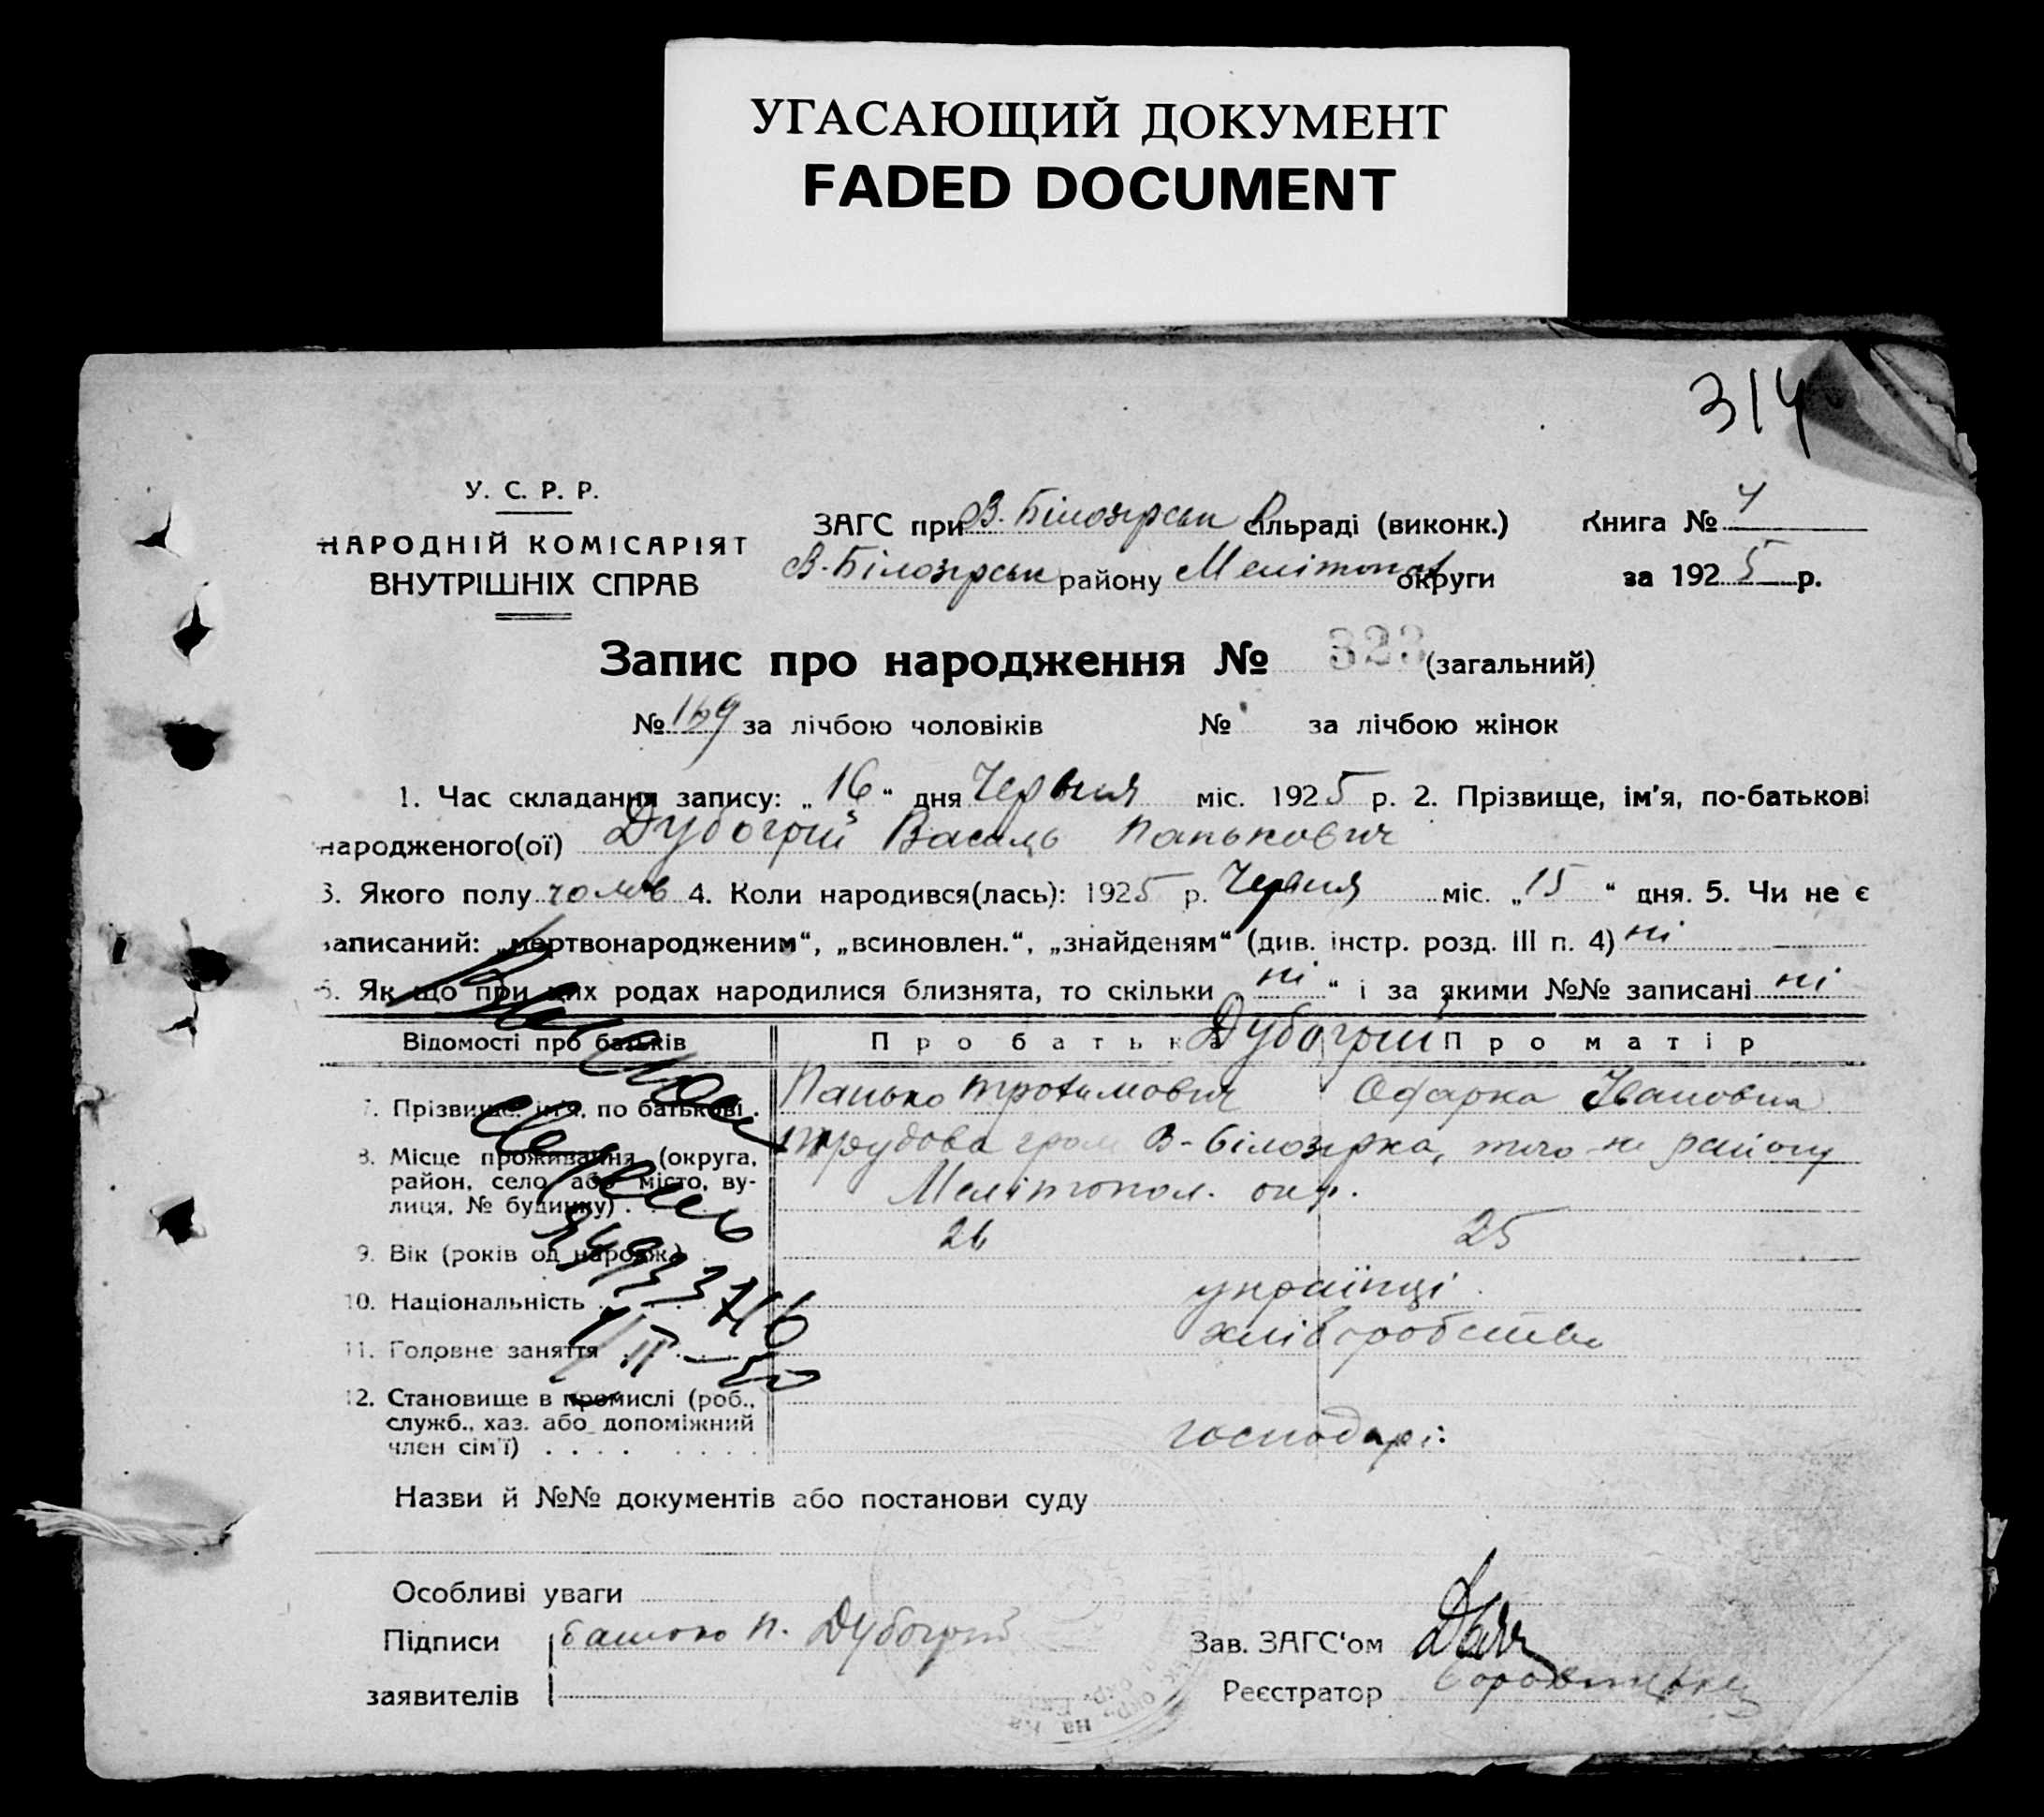 УГАСАЮЩИЙ ДОКУМЕНТ
FADED DOCUMENT
314
У. С. Р. Р.
НАРОДНІЙ КОМІСАРІЯТ
ВНУТРІШНІХ СПРАВ
ЗАГС при В. Білозірськ сільраді (виконк.)
В-Білозірськ району Мелітоп округи
Книга № 4
за 1925 р.
Запис про народження № 323 (загальний)
№ 169 за лічбою чоловіків № за лічбою жінок
1. Час складання запису: „16“ дня Червня міс. 1925 р. 2. Прізвище, ім’я, по-батькові
народженого(ої) Дубогрій Василь Панькович
3. Якого полу чолов 4. Коли народився(лась): 1925 р. Червня міс. „15“ дня. 5. Чи не є
записаний: „мертвонародженим“, „всиновлен.“, „знайденям“ (див. інстр. розд. III п. 4) ні
6. Як що при цих родах народилися близнята, то скільки „ні“ і за якими №№ записані ні
Відомості про батьків Про батька Дубогрій Про матір
7. Прізвище, ім’я, по батькові . Панько Трохимович Офарка Івановна
8. Місце проживання (округа, Трудова гром В-Білозірка, того-ж району
район, село або місто, ву-
лиця, № будинку) . Мелітопол. окр.
9. Вік (років од народж.) 26 25
10. Національність українці
11. Головне заняття хліборобство
12. Становище в промислі (роб.,
служб., хаз. або допоміжний
член сім’ї) господарі
Назви й №№ документів або постанови суду
Особливі уваги
Підписи батько П. Дубогрій Зав. ЗАГС‘ом
заявителів Реєстратор